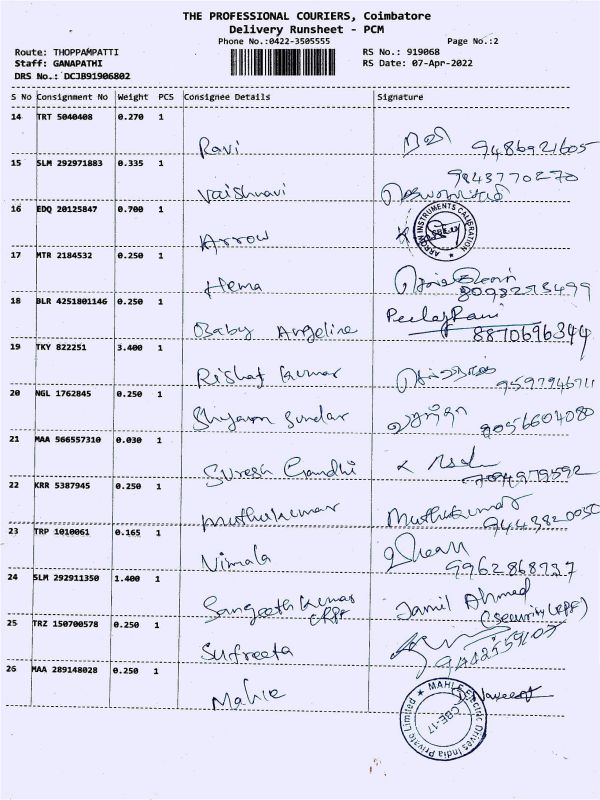 THE PROFESSIONAL COURIERS, Coimbatore
Delivery Runsheet - PCM
Phone No.:0422-3505555 Page No.:2
Route: THOPPAMPATTI RS No.: 919068
Staff: GANAPATHI RS Date: 07-Apr-2022
DRS No.: DCJB91906802
S No Consignment No Weight PCS Consignee Details Signature
14 TRT 5040408 0.270 1
Ravi ரவி 9486921605
15 SLM 292971883 0.335 1
9843770270
Vaishnavi
16 EDQ 20125847 0.700 1
Arrow ARROW INSTRUMENTS CALIBRATION
17 MTR 2184532 0.250 1
Hema 8098293499
18 BLR 4251801146 0.250 1
Baby Angeline 8870696344
19 TKY 822251 3.400 1
Rishaf Kumar 9597946711
20 NGL 1762845 0.250 1
Shyam Sundar வசந்தா 8056604080
21 MAA 566557310 0.030 1
Suresh Gandhi 7094979592
22 KRR 5387945 0.250 1
Muthukumar Muthukumar 9443820050
23 TRP 1010061 0.165 1
Vimala 9962868937
24 SLM 292911350 1.400 1
Sangeeth Kumar Jamil Ahmed
CRPF (Security CRPF)
25 TRZ 150700578 0.250 1
Sufreeta 9442559107
26 MAA 289148028 0.250 1
Mahle Naveen
MAHLE Electric Drives India Private Limited
CBE-17